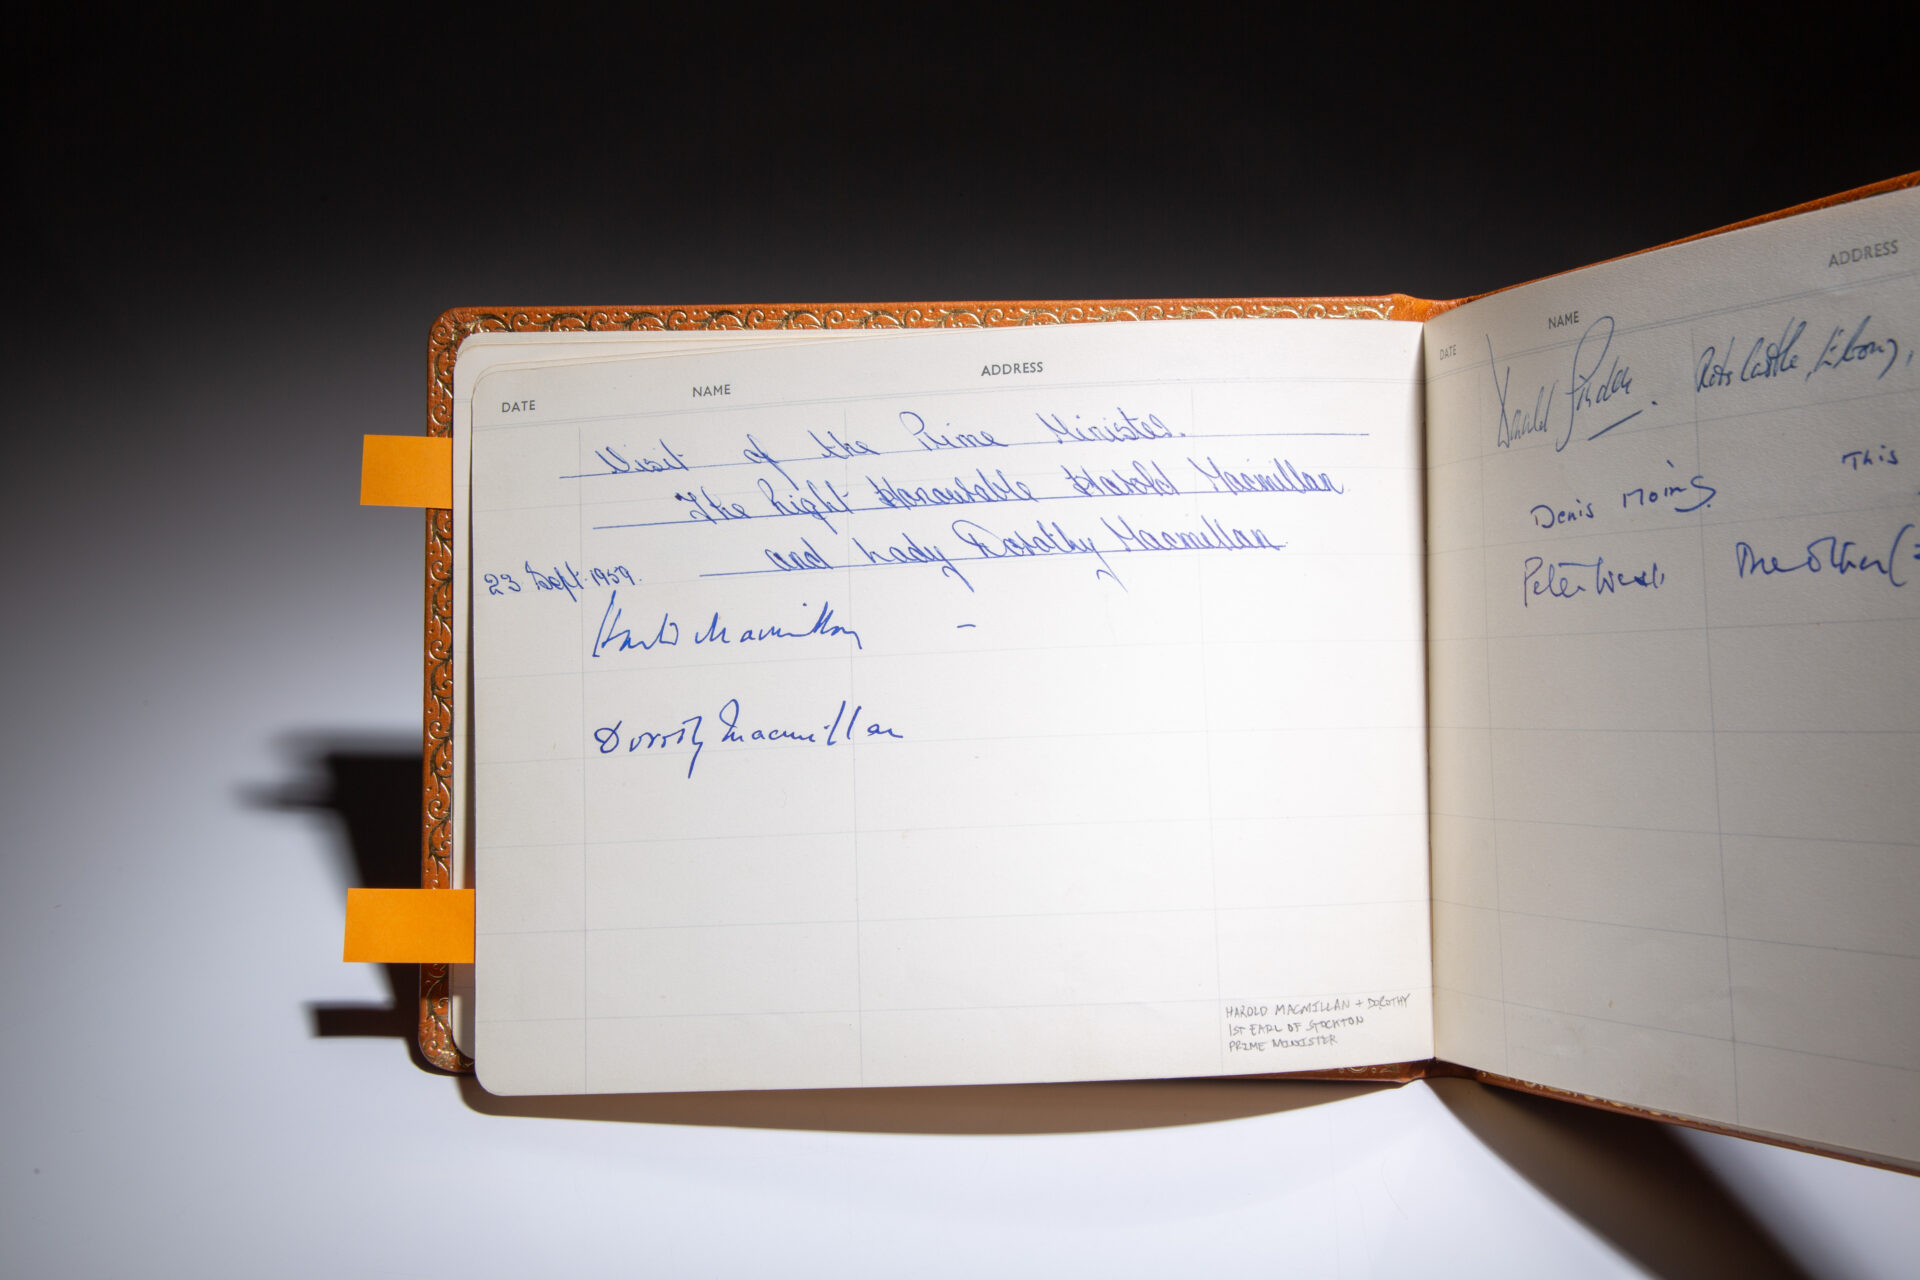 DATE NAME ADDRESS
Visit of the Prime Minister.
The Right Honourable Harold Macmillan
and Lady Dorothy Macmillan
23 Sept. 1959.
Harold Macmillan –
Dorothy Macmillan
HAROLD MACMILLAN + DOROTHY
1ST EARL OF STOCKTON
PRIME MINISTER
DATE NAME ADDRESS
Donald Castle,
Denis This
Peter The Other (